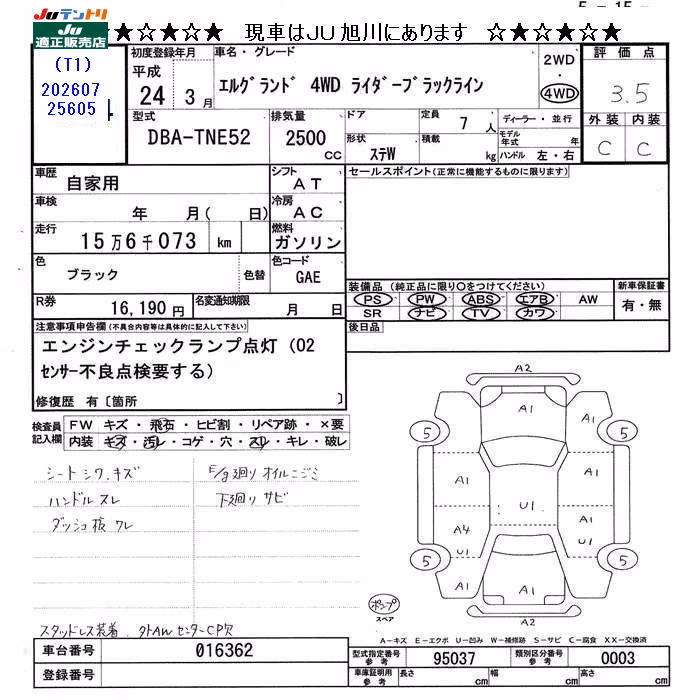 JUテントリ
JU
適正販売店
★☆★☆★ 現車はJU旭川にあります ☆★☆★☆★
(T1)
202607
25605
初度登録年月
平成
24 3月
車名・グレード
エルグランド 4WD ライダーブラックライン
2WD
・
4WD
評価点
3.5
外装 内装
C C
型式
DBA-TNE52
排気量
2500
CC
ドア
定員
7人
ディーラー・並行
形状
ステW
積載
kg
モデル年式 年
ハンドル 左・右
車歴
自家用
シフト
AT
車検
年 月( 日)
冷房
AC
走行
15万6千073 km
燃料
ガソリン
色
ブラック
色替
色コード
GAE
R券
16,190円
名変通知期限
月 日
セールスポイント(正常に機能するものに限ります)
装備品 (純正品に限り○をつけてください)
PS PW ABS エアB AW
SR ナビ TV カワ
新車保証書
有・無
後日品
注意事項申告欄(不具合内容等は具体的に記入して下さい)
エンジンチェックランプ点灯(O2
センサー不良点検要する)
修復歴 有〔箇所 〕
検査員
記入欄
FW キズ・飛石・ヒビ割・リペア跡・×要
内装 キズ・汚レ・コゲ・穴・スレ・キレ・破レ
シートシワ、キズ
ハンドルスレ
ダッシュ板ワレ
E/g廻りオイルニジミ
下廻りサビ
スタッドレス装着、外AWセンターCP欠
A2
A1
A1
5
5
A1
A1
U1
A4
U1
A1
U1
5
5
A1
A1
A2
ポンプ
スペア
A-キズ E-エクボ U-凹み W-補修跡 S-サビ C-腐食 XX-交換済
車台番号
016362
登録番号
型式指定番号
参考
95037
類別区分番号
参考
0003
車庫証明用
参考
長さ cm
幅 cm
高さ cm